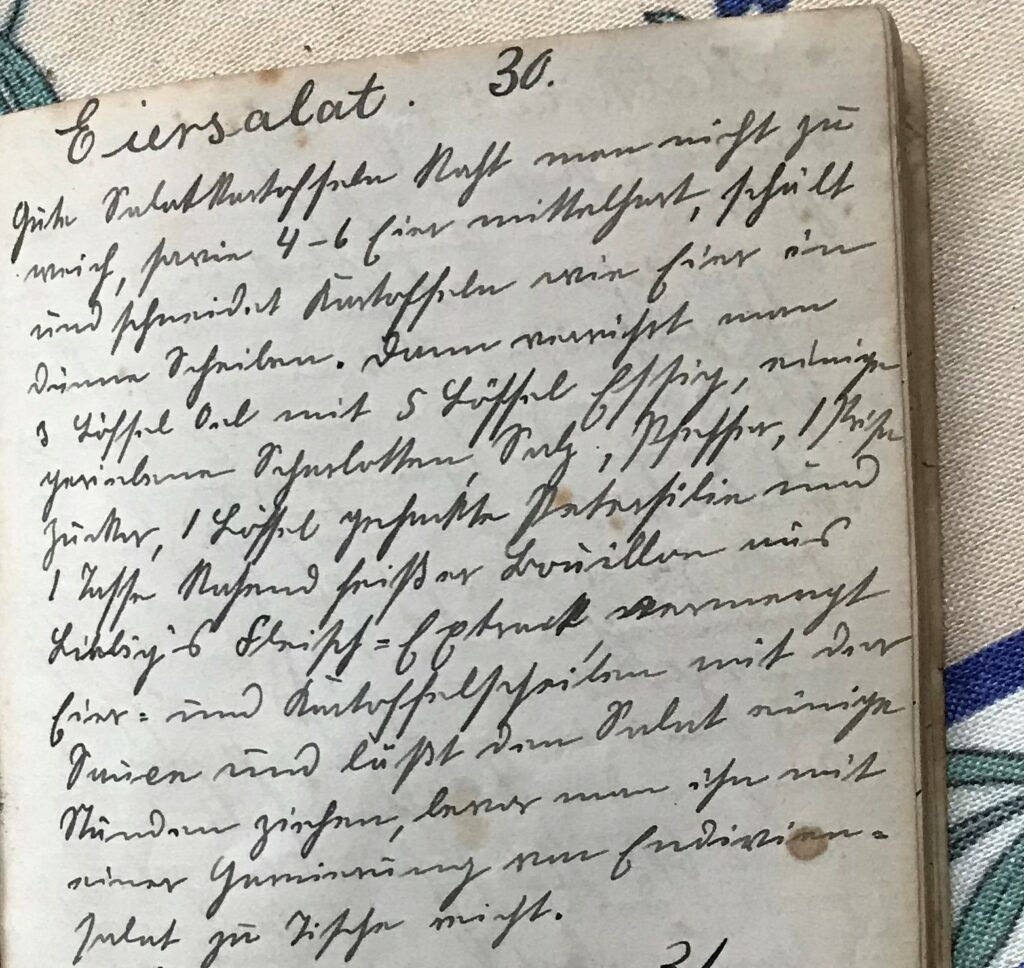 Eiersalat. 30.
Gute Salatkartoffeln kaht man nicht zu
weich, sowie 4-6 Eier mittelhart, schält
und schneidet Kartoffeln wie Eier in
dünne Scheiben. Dann verrührt man
3 Löffel Oel mit 5 Löffel Essig, einige
geriebene Scharlotten, Salz, Pfeffer, 1 Prise
Zucker, 1 Löffel gehackte Petersilie und
1 Tasse kochend heißer Bouillon aus
Liebig's Fleisch=Extrakt vermengt
Eier= und Kartoffelscheiben mit der
Sauce und läßt den Salat einige
Stunden ziehen, bevor man ihn mit
einer Garnierung von Endivien=
salat zu Tische reicht.
31